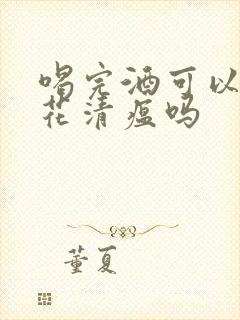 喝完酒可以
花清瘟吗
董夏